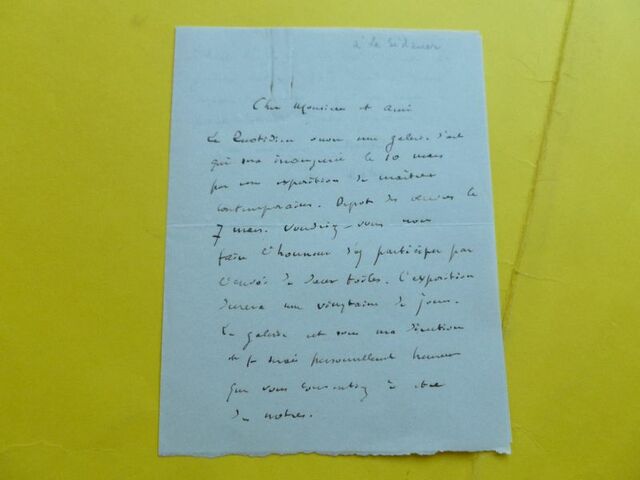 à Le Sidaner
Cher Monsieur et Ami
Le Quotidien ouvre une galerie d'art
qui sera inaugurée le 10 mars
par une exposition de maîtres
contemporains. Dépôt des œuvres le
7 mars. Voudriez-vous nous
faire l'honneur d'y participer par
l'envoi de deux toiles. L'exposition
durera une vingtaine de jours.
La galerie est sous ma direction
et je serais personnellement heureux
que vous consentiez à être
des nôtres.